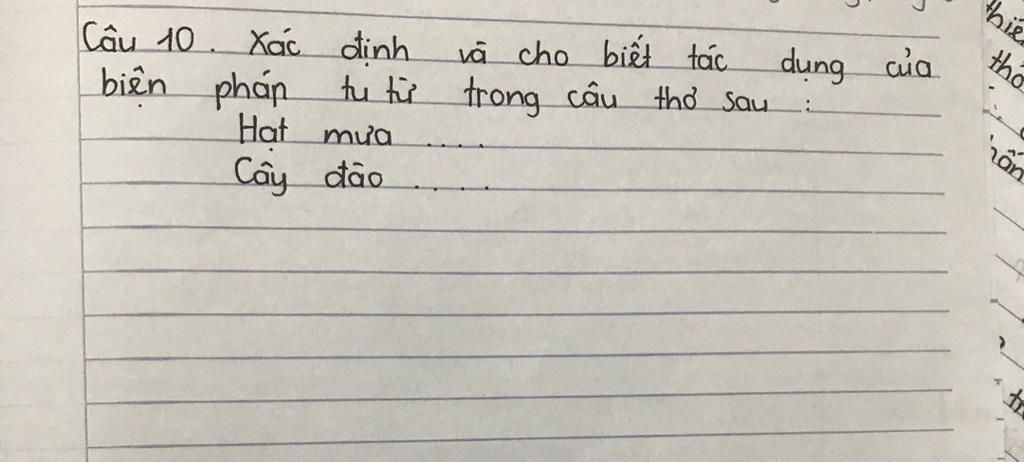 Câu 10. Xác định và cho biết tác dụng của
biện pháp tu từ trong câu thơ sau :
Hạt mưa ....
Cây đào .....